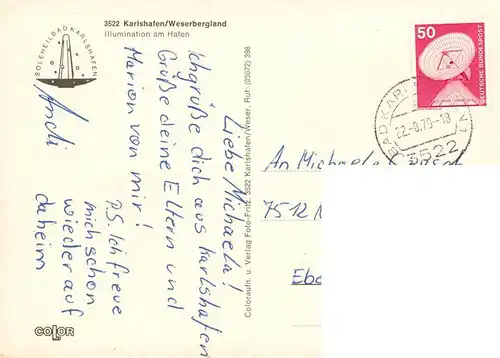 3522 Karlshafen/Weserbergland
Illumination am Hafen
SOLEHEILBAD KARLSHAFEN
Liebe Michaela!
Ich grüße dich aus Karlshafen
Grüße deine Eltern und
Marion von mir!
P.S. Ich freue
mich schon
wieder auf
daheim
COLOR
Coloraufn. u. Verlag Foto-Fritz, 3522 Karlshafen/Weser, Ruf: (05672) 398
50
DEUTSCHE BUNDESPOST
22.-8.79.-18
3522
An Michaela
7512
Ebe